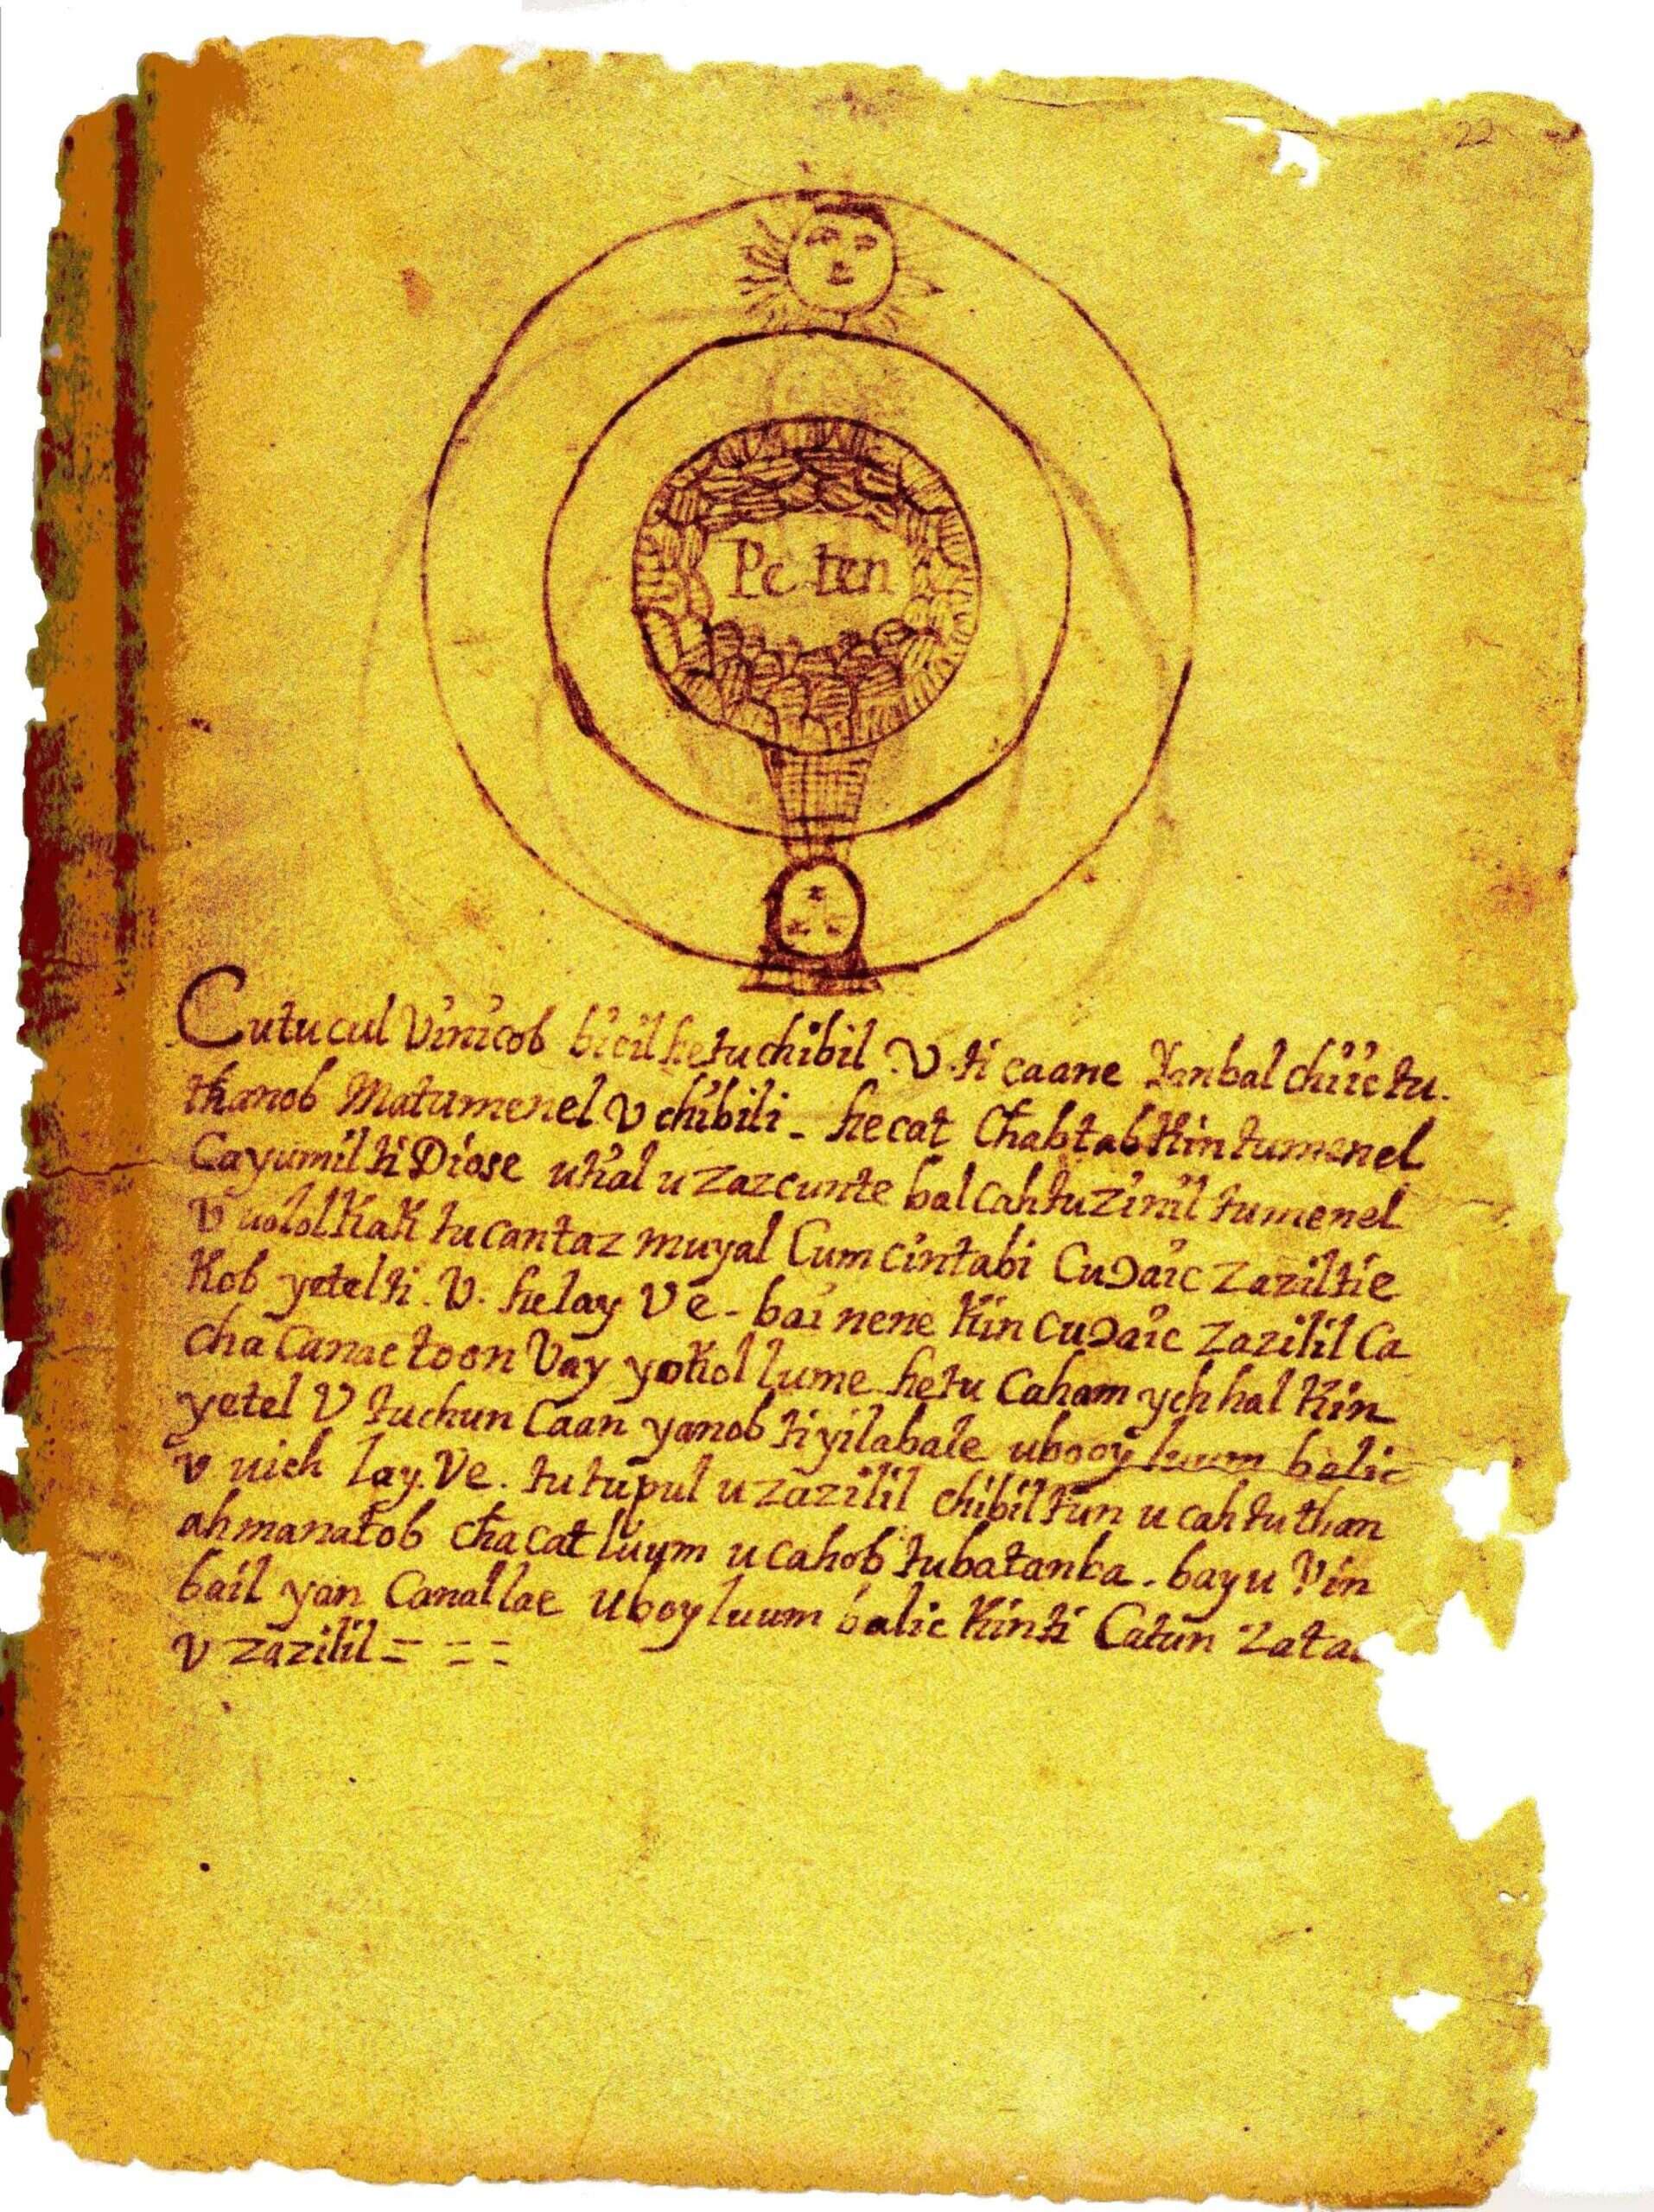 22
Peten
Cutucul Vinicob bicil hetu chibil V. ti caane Yanbal chiic tu.
thanob Matumenel V chibili - he cat Chabtab Kin tumenel
Cayumil ti Diose utial u zazcunte bal cah tuzinil tumenel
V uolol Kak tu cantaz muyal Cumcintabi Cuɔaic zaziltie
Kob yetel ti. V. helay Ve - bai nene Kin Cuɔaic zazilil Ca
cha canac toon Vay yokol lume hetu Caham ychhal Kin
yetel V tuchun Caan yanob tiyilabale ubooy luum balic
v uich lay. Ve. tu tupul u zazilil chibil tun u cah tu than
ahmanatob cha cat luum u cahob tubatanba. bayu Vin
bail yan Canal lae Uboy luum balic Kin ti Catun
V zazilil = = =